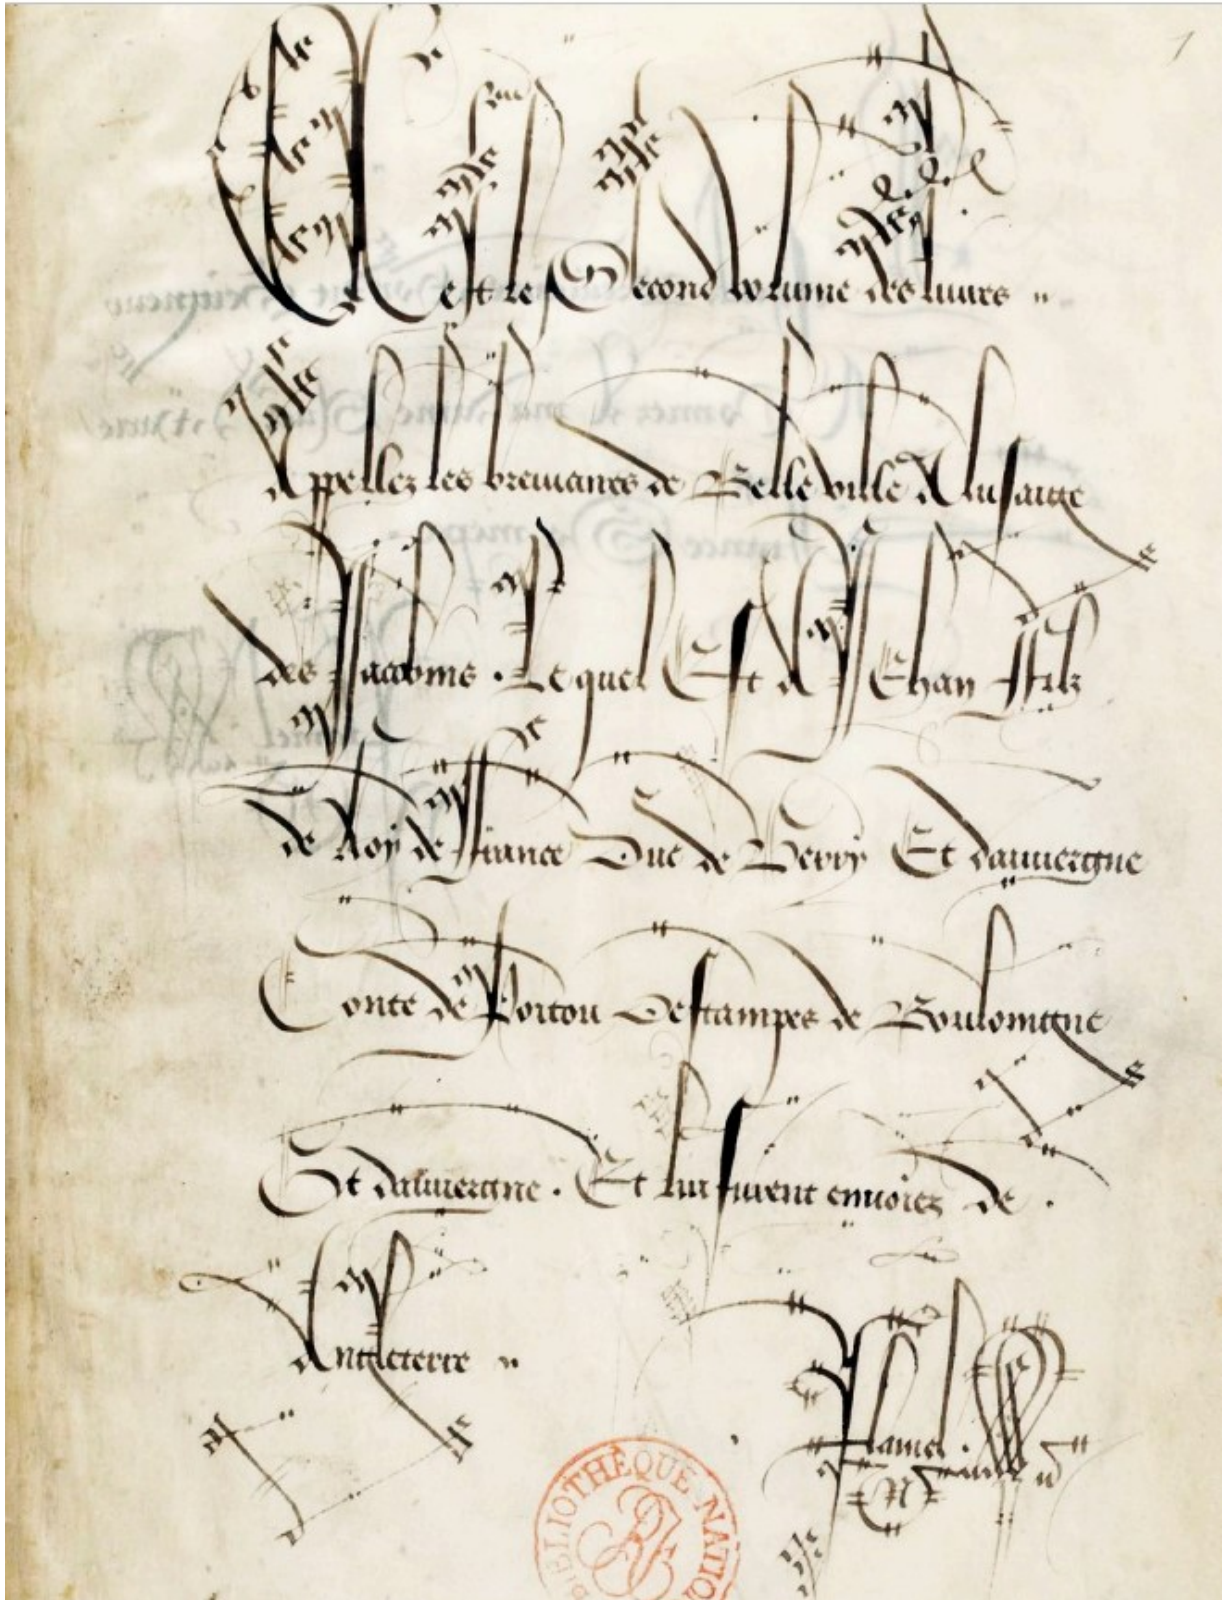 1
Cest le Second volume des liures
Appellez les breuiaires de Belleville A lusaige
des Jacobins . Le quel Est A JEhan ffilz
de Roy de ffrance Duc de Berry Et dauuergne
Conte de Poitou Destampes de Boulongne
Et dauuergne . Et lui furent enuoiez de .
Angleterre
flamel .
BIBLIOTHÈQUE NATIO